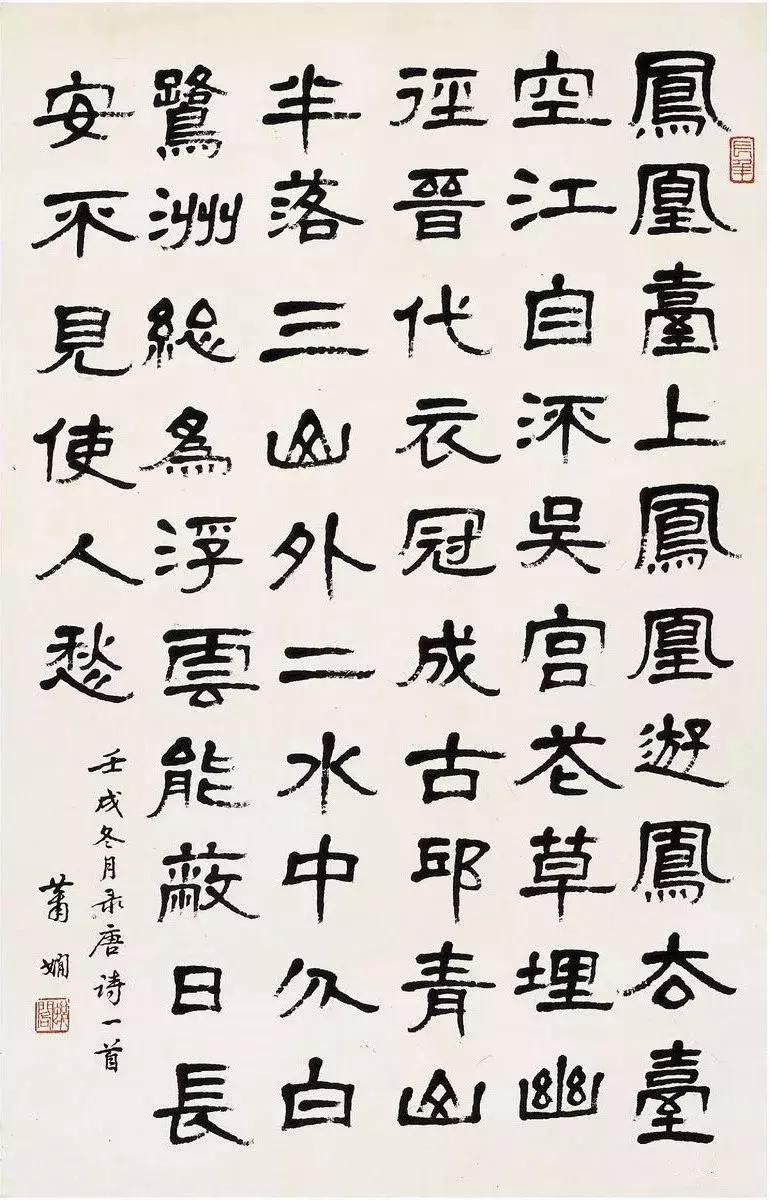 鳳凰臺上鳳凰遊鳳去臺
空江自流吳宮花草埋幽
徑晉代衣冠成古邱青山
半落三山外二水中分白
鷺洲總爲浮雲能蔽日長
安不見使人愁
壬戌冬月录唐诗一首
蕭嫻
長年